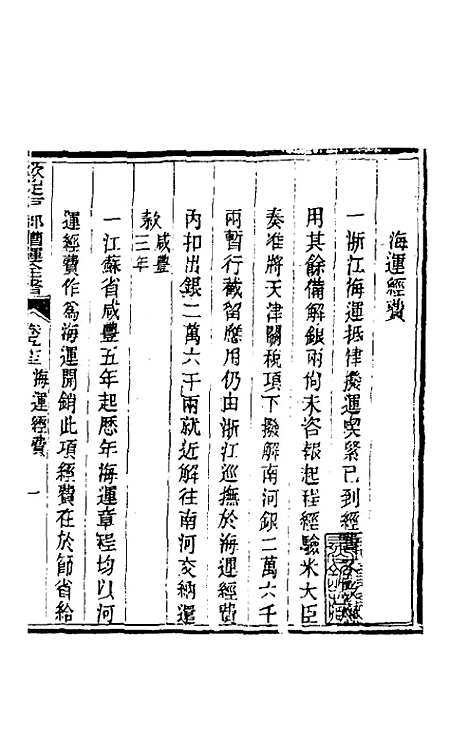 海運經費
一浙江海運抵津撥運喫緊已到經費
用其餘備解銀兩尙未咨報起程經驗米大臣
奏准將天津關稅項下撥解南河銀二萬六千
兩暫行截留應用仍由浙江巡撫於海運經費
內扣出銀二萬六千兩就近解往南河交納還
款
咸豐
三年
一江蘇省咸豐五年起歷年海運章程均以河
運經費作爲海運開銷此項經費在於節省給
欽定戶部漕運全書
海運經費
一